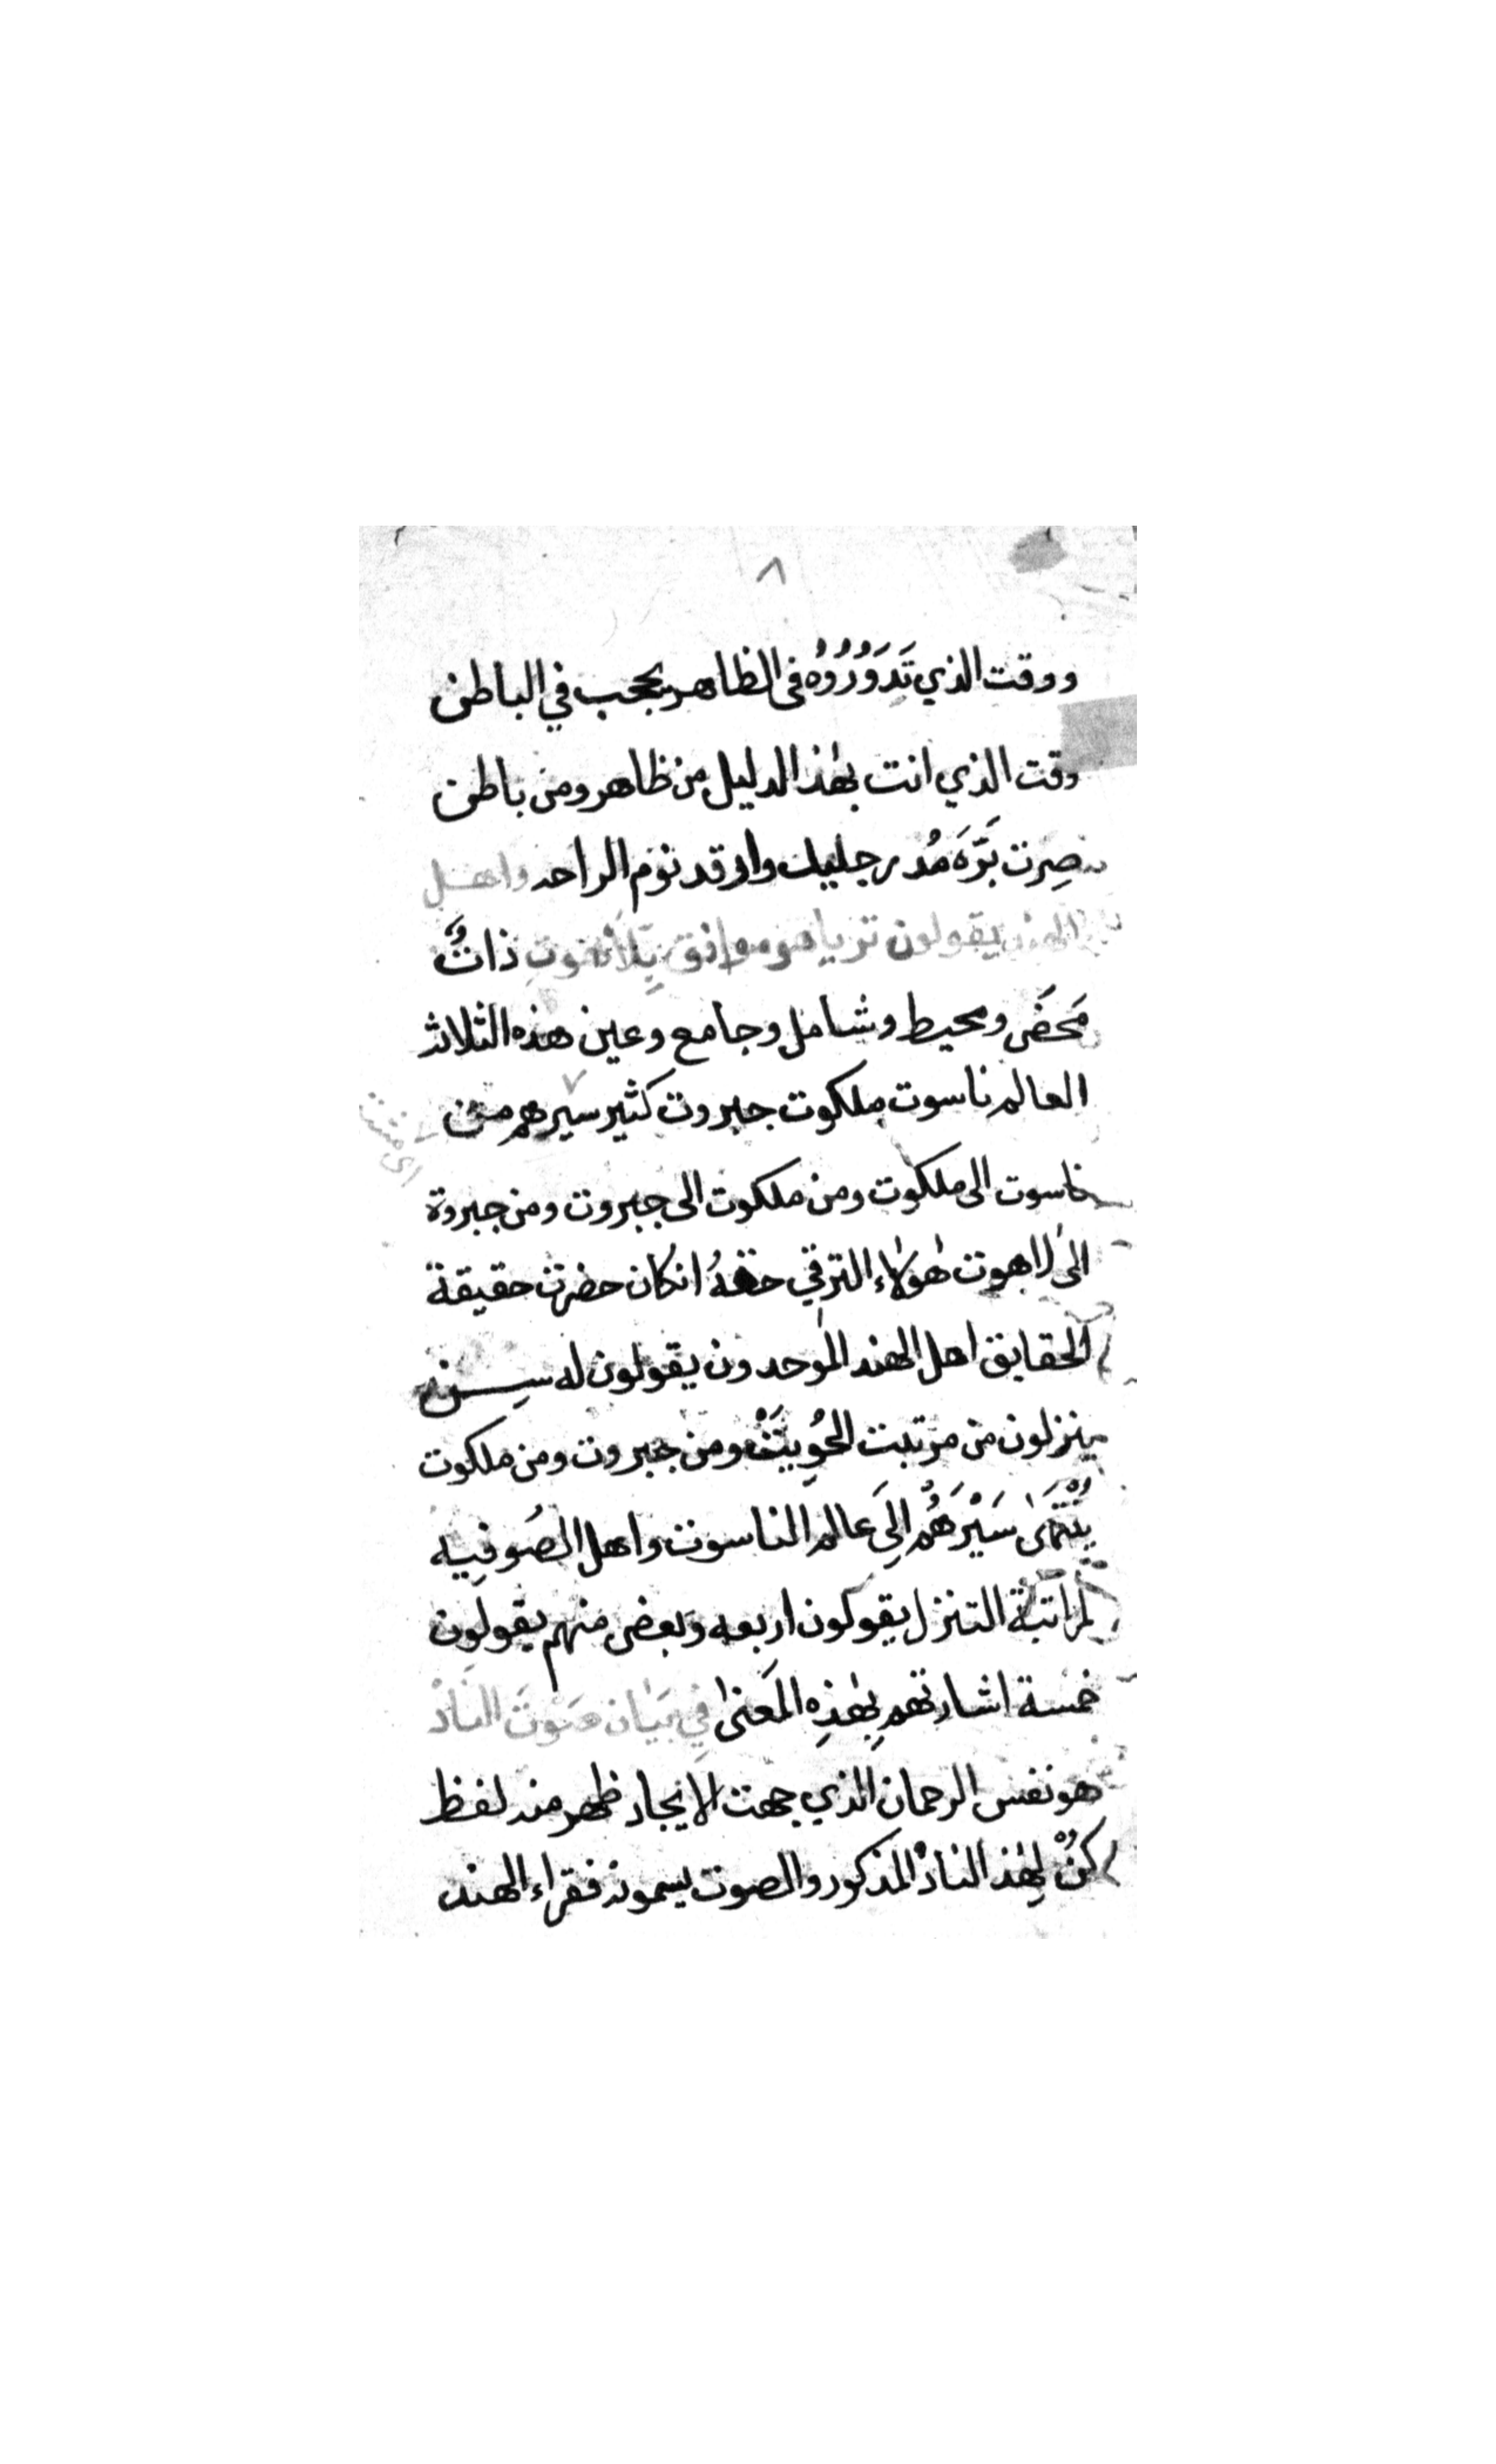 ٨
ووقت الذي تَدَوُرُوُه في الظاهر يحجب في الباطن
وقت الذي انت بهٰذ الدليل من ظاهر ومن باطن
صِرت بَرَّهَ مُد رجليك وارقد نوم الراحه واهل
الهند يقولون تريا هو موافق بِلاَهُوتِ ذاتٌ
مَحَضَى ومحيط وشامل وجامع وعين هذه الثلاث
العالم ناسوت ملكوت جبروت كثير سيرهم من
ناسوت الى ملكوت ومن ملكوت الى جبروت ومن جبروة
الى لاهوت هٰولاء الترقي حقهُ انكان حضرت حقيقة
الحقايق اهل الهند الموحدون يقولون له سِن
ينزلون من مرتبت الحُوِيتْ ومن جبروت ومن ملكوت
يُنْتَهىٰ سَيْرَهُم اِلَى عالم الناسوت واهل الصُوفِيه
لمراتبة التنزل يقولون اربعه وبعض منهم يقولون
خمسة اشارتهم بِهٰذِه المَعنىٰ فِي بَيَان صَوْتَ النَادْ
هو نفس الرحمان الذي جهت الايجاد ظهر منه لفظ
كُنْ لِهٰذ النادْ المذكور والصوت يسمونه فقراء الهند